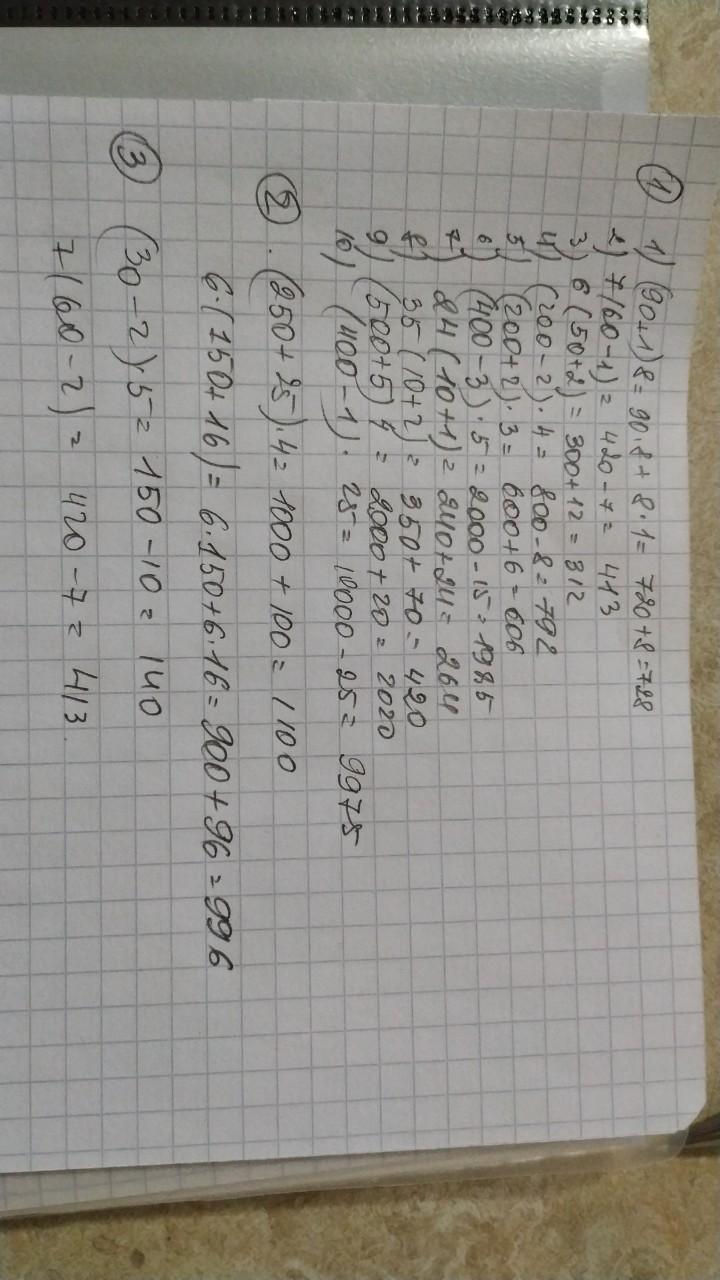 ① 1) (90+1)8=90·8+8·1=720+8=728
2) 7(60-1)=420-7=413
3) 6(50+2)=300+12=312
4) (200-2)·4=800-8=792
5) (200+2)·3=600+6=606
6) (400-3)·5=2000-15=1985
7) 24(10+1)=240+24=264
8) 35(10+2)=350+70=420
9) (500+5)4=2000+20=2020
10) (400-1)·25=10000-25=9975
② ·(250+25)·4=1000+100=1100
6·(150+16)=6·150+6·16=900+96=996
③ (30-2)·5=150-10=140
7(60-2)=420-7=413